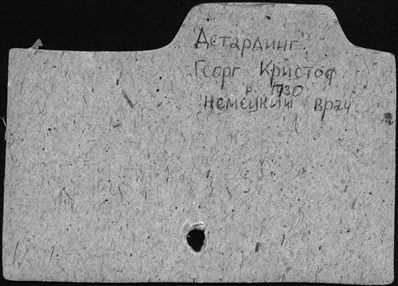 Детардинг.
Георг Кристоф
р. 1730
немецкий врач